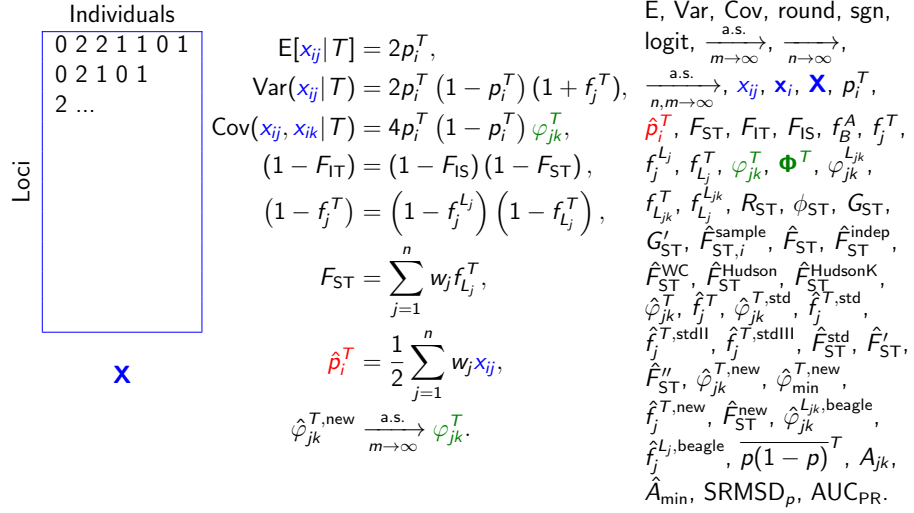 Individuals
0 2 2 1 1 0 1
0 2 1 0 1
2 ...
Loci
X
E[x_{ij}|T] = 2p_i^T,
Var(x_{ij}|T) = 2p_i^T (1 − p_i^T) (1 + f_j^T),
Cov(x_{ij}, x_{ik}|T) = 4p_i^T (1 − p_i^T) φ_{jk}^T,
(1 − F_{IT}) = (1 − F_{IS}) (1 − F_{ST}),
(1 − f_j^T) = (1 − f_j^{L_j}) (1 − f_{L_j}^T),
F_{ST} = ∑_{j=1}^n w_j f_{L_j}^T,
p̂_i^T = \frac{1}{2} ∑_{j=1}^n w_j x_{ij},
φ̂_{jk}^{T,new} \xrightarrow[m→∞]{a.s.} φ_{jk}^T.
E, Var, Cov, round, sgn,
logit, \xrightarrow[m→∞]{a.s.}, \xrightarrow[n→∞]{},
\xrightarrow[n,m→∞]{a.s.}, x_{ij}, x_i, X, p_i^T,
p̂_i^T, F_{ST}, F_{IT}, F_{IS}, f_B^A, f_j^T,
f_j^{L_j}, f_{L_j}^T, φ_{jk}^T, Φ^T, φ_{jk}^{L_{jk}},
f_{L_{jk}}^T, f_{L_j}^{L_{jk}}, R_{ST}, ϕ_{ST}, G_{ST},
G'_{ST}, F̂_{ST,i}^{sample}, F̂_{ST}, F̂_{ST}^{indep},
F̂_{ST}^{WC}, F̂_{ST}^{Hudson}, F̂_{ST}^{HudsonK},
φ̂_{jk}^T, f̂_j^T, φ̂_{jk}^{T,std}, f̂_j^{T,std},
f̂_j^{T,stdII}, f̂_j^{T,stdIII}, F̂_{ST}^{std}, F̂'_{ST},
F̂''_{ST}, φ̂_{jk}^{T,new}, φ̂_{min}^{T,new},
f̂_j^{T,new}, F̂_{ST}^{new}, φ̂_{jk}^{L_{jk},beagle},
f̂_j^{L_j,beagle}, \overline{p(1 − p)}^T, A_{jk},
Â_{min}, SRMSD_p, AUC_{PR}.